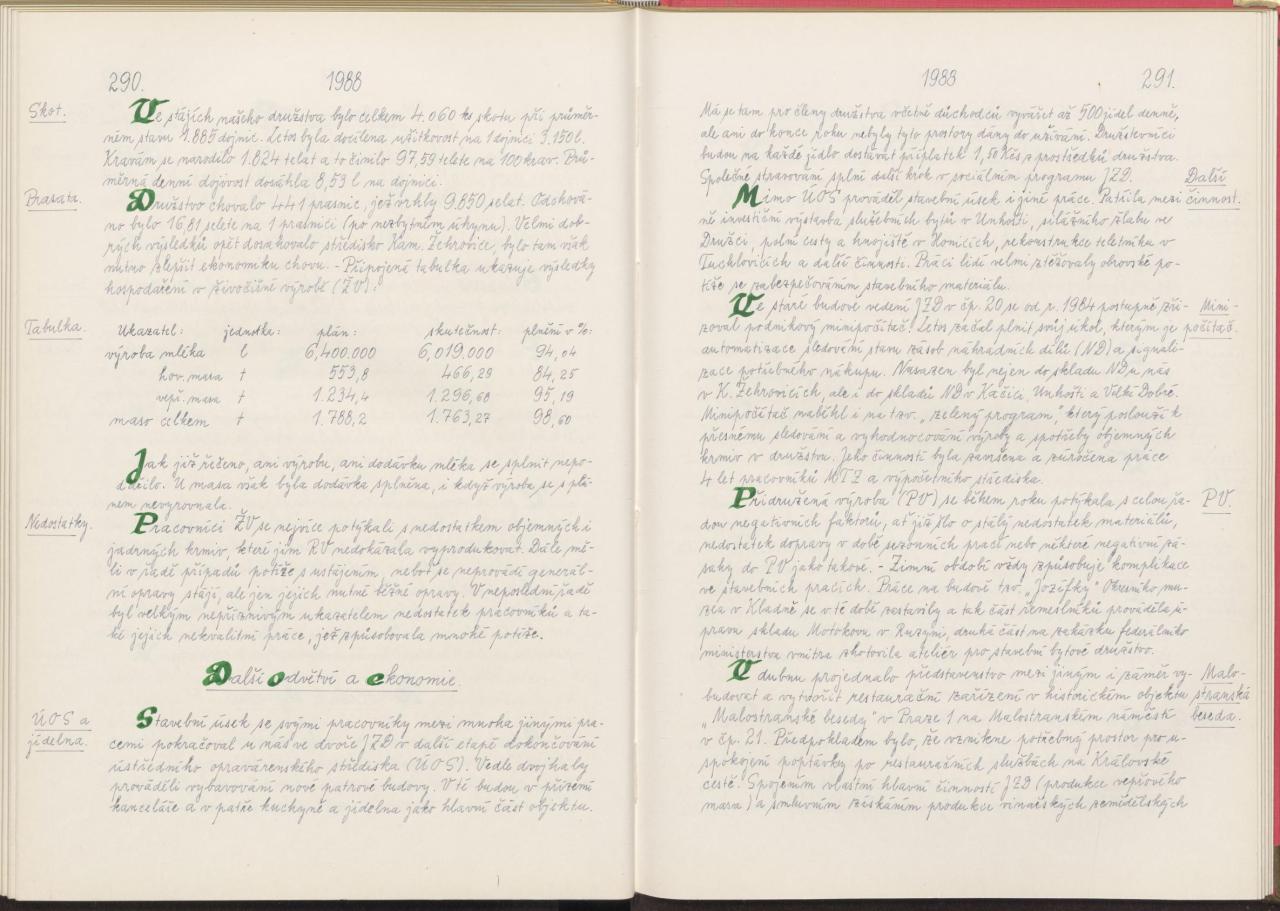 290. 1988
Skot.
Ve stájích našeho družstva bylo celkem 4.060 ks skotu při průměr-
ném stavu 1.885 dojnic. Letos byla docílena užitkovost na 1 dojnici 3.150 l.
Kravám se narodilo 1.824 telat a to činilo 97,59 telete na 100 krav. Prů-
měrná denní dojivost dosáhla 8,53 l na dojnici.
Prasata.
Družstvo chovalo 441 prasnic, jež vrhly 9.850 selat. Odchová-
no bylo 16,81 selete na 1 prasnici (po nezbytném úhynu). Velmi dob-
rých výsledků opět dosahovalo středisko Kam. Žehrovice, bylo tam však
nutno zlepšit ekonomiku chovu. - Připojená tabulka ukazuje výsledky
hospodaření v živočišní výrobě (ŽV):
Tabulka.
Ukazatel: jednotka: plán: skutečnost: plnění v %:
výroba mléka l 6,400.000 6,019,000 94,04
hov. masa t 553,8 466,29 84,25
vepř. masa t 1.234,4 1.296,68 95,19
maso celkem t 1.788,2 1.763,27 98,60
Jak již řečeno, ani výrobu, ani dodávku mléka se splnit nepo-
dařilo. U masa však byla dodávka splněna, i když výroba se s plá-
nem nevyrovnala.
Nedostatky.
Pracovníci ŽV se nejvíce potýkali s nedostatkem objemných i
jadrných krmiv, které jim RV nedokázala vyprodukovat. Dále mě-
li v řadě případů potíže s ustájením, neboť se neprovádí generál-
ní opravy stájí, ale jen jejich nutné běžné opravy. V neposlední řadě
byl velkým nepříznivým ukazatelem nedostatek pracovníků a ta-
ké jejich nekvalitní práce, jež způsobovala mnohé potíže.
Další odvětví a ekonomie.
ÚOS a
jídelna.
Stavební úsek se svými pracovníky mezi mnoha jinými pra-
cemi pokračoval u nás ve dvoře JZD v další etapě dokončování
ústředního opravárenského střediska (ÚOS). Vedle dvojhaly
prováděli vybavování nové patrové budovy. V té budou v přízemí
kanceláře a v patře kuchyně a jídelna jako hlavní část objektu.
1988 291.
Má se tam pro členy družstva včetně důchodců vyvářet až 500 jídel denně,
ale ani do konce roku nebyly tyto prostory dány do užívání. Družstevníci
budou na každé jídlo dostávat příplatek 1,50 Kčs z prostředků družstva.
Společné stravování splní další krok v sociálním programu JZD.
Další
činnost.
Mimo ÚOS prováděl stavební úsek i jiné práce. Patřila mezi
ně investiční výstavba služebních bytů v Unhošti, silážního žlabu ve
Družci, polní cesty a hnojiště v Honicích, rekonstrukce teletníku v
Tuchlovicích a další činnosti. Práci lidí velmi ztěžovaly obrovské po-
tíže se zabezpečováním stavebního materiálu.
Mini-
počítač.
Ve staré budově vedení JZD v čp. 20 se od r. 1984 postupně zři-
zoval podnikový minipočítač. Letos začal plnit svůj úkol, kterým je
automatizace sledování stavu zásob náhradních dílů (ND) a signali-
zace potřebného nákupu. Nasazen byl nejen do skladu ND u nás
v K. Žehrovicích, ale i do skladů ND v Kačici, Unhošti a Velké Dobré.
Minipočítač naběhl i na tzv. „zelený program“, který poslouží k
přesnému sledování a vyhodnocování výroby a spotřeby objemných
krmiv v družstvu. Jeho činností byla završena a zúročena práce
4 let pracovníků MTZ a výpočetního střediska.
PV.
Přidružená výroba (PV) se během roku potýkala s celou řa-
dou negativních faktorů, ať již šlo o stálý nedostatek materiálů,
nedostatek dopravy v době sezonních prací nebo některé negativní zá-
sahy do PV jako takové. - Zimní období vždy způsobuje komplikace
ve stavebních pracích. Práce na budově tzv. „Jozífky“ Okresního mu-
zea v Kladně se v té době zastavily a tak část řemeslníků prováděla ú-
pravu skladu Motokovu v Ruzyni, druhá část na zakázku federálního
ministerstva vnitra zhotovila ateliér pro stavební bytové družstvo.
Malo-
stranská
beseda.
V dubnu projednalo představenstvo mezi jiným i záměr vy-
budovat a vytvořit restaurační zařízení v historickém objektu
„Malostranské besedy“ v Praze 1 na Malostranském náměstí
v čp. 21. Předpokladem bylo, že vznikne potřebný prostor pro u-
spokojení poptávky po restauračních službách na Královské
cestě. Spojením vlastní hlavní činnosti JZD (produkce vepřového
masa) a smluvním získáním produkce vinařských zemědělských